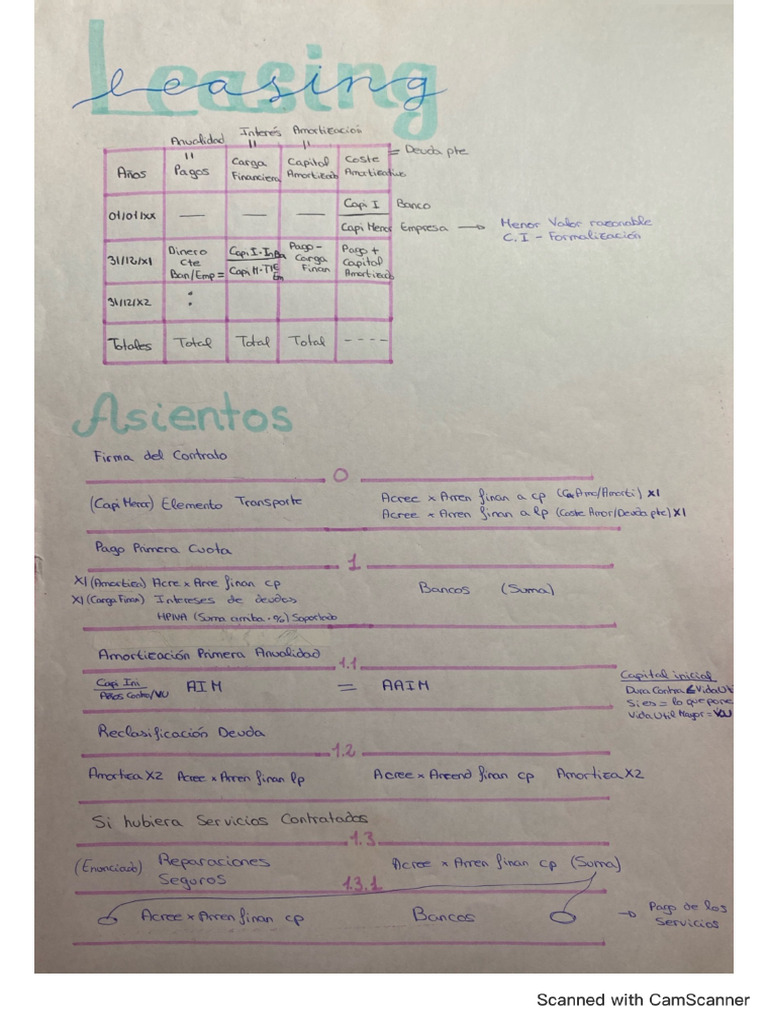 Leasing
Anualidad Interés Amortización
" " "
Años Pagos Carga Financiera Capital Amortizado Coste Amortizativo = Deuda pte
01/01/XX — — — Capi I Banco
Capi Menor Empresa → Menor Valor razonable
C.I - Formalización
31/12/X1 Dinero Cte Ban/Emp = Capi. I · In Ba Pago - Carga Finan Pago + Capital Amortizado
Capi M · TIE Em
31/12/X2 :
Totales Total Total Total ----
Asientos
Firma del Contrato
0
(Capi Menor) Elemento Transporte Acree x Arren finan a cp (Amo/Amorti) X1
Acree x Arren finan a lp (Coste Amor/Deuda pte) X1
Pago Primera Cuota
1
X1 (Amortiza) Acre x Arre finan cp Bancos (Suma)
X1 (Carga Finan) Intereses de deudas
HPIVA (Suma arriba · %) Soportado
Amortización Primera Anualidad
1.1
Capi Ini
Años Contra/VU AIM = AAIM
Capital inicial
Dura Contra < Vida Uti
Si es = lo que pone
Vida Util Mayor = VU
Reclasificación Deuda
1.2
Amortiza X2 Acree x Arren finan lp Acree x Arrend finan cp Amortiza X2
Si hubiera Servicios Contratados
1.3
(Enunciado) Reparaciones Acree x Arren finan cp (Suma)
Seguros
1.3.1
Acree x Arren finan cp Bancos → Pago de los
Servicios
Scanned with CamScanner